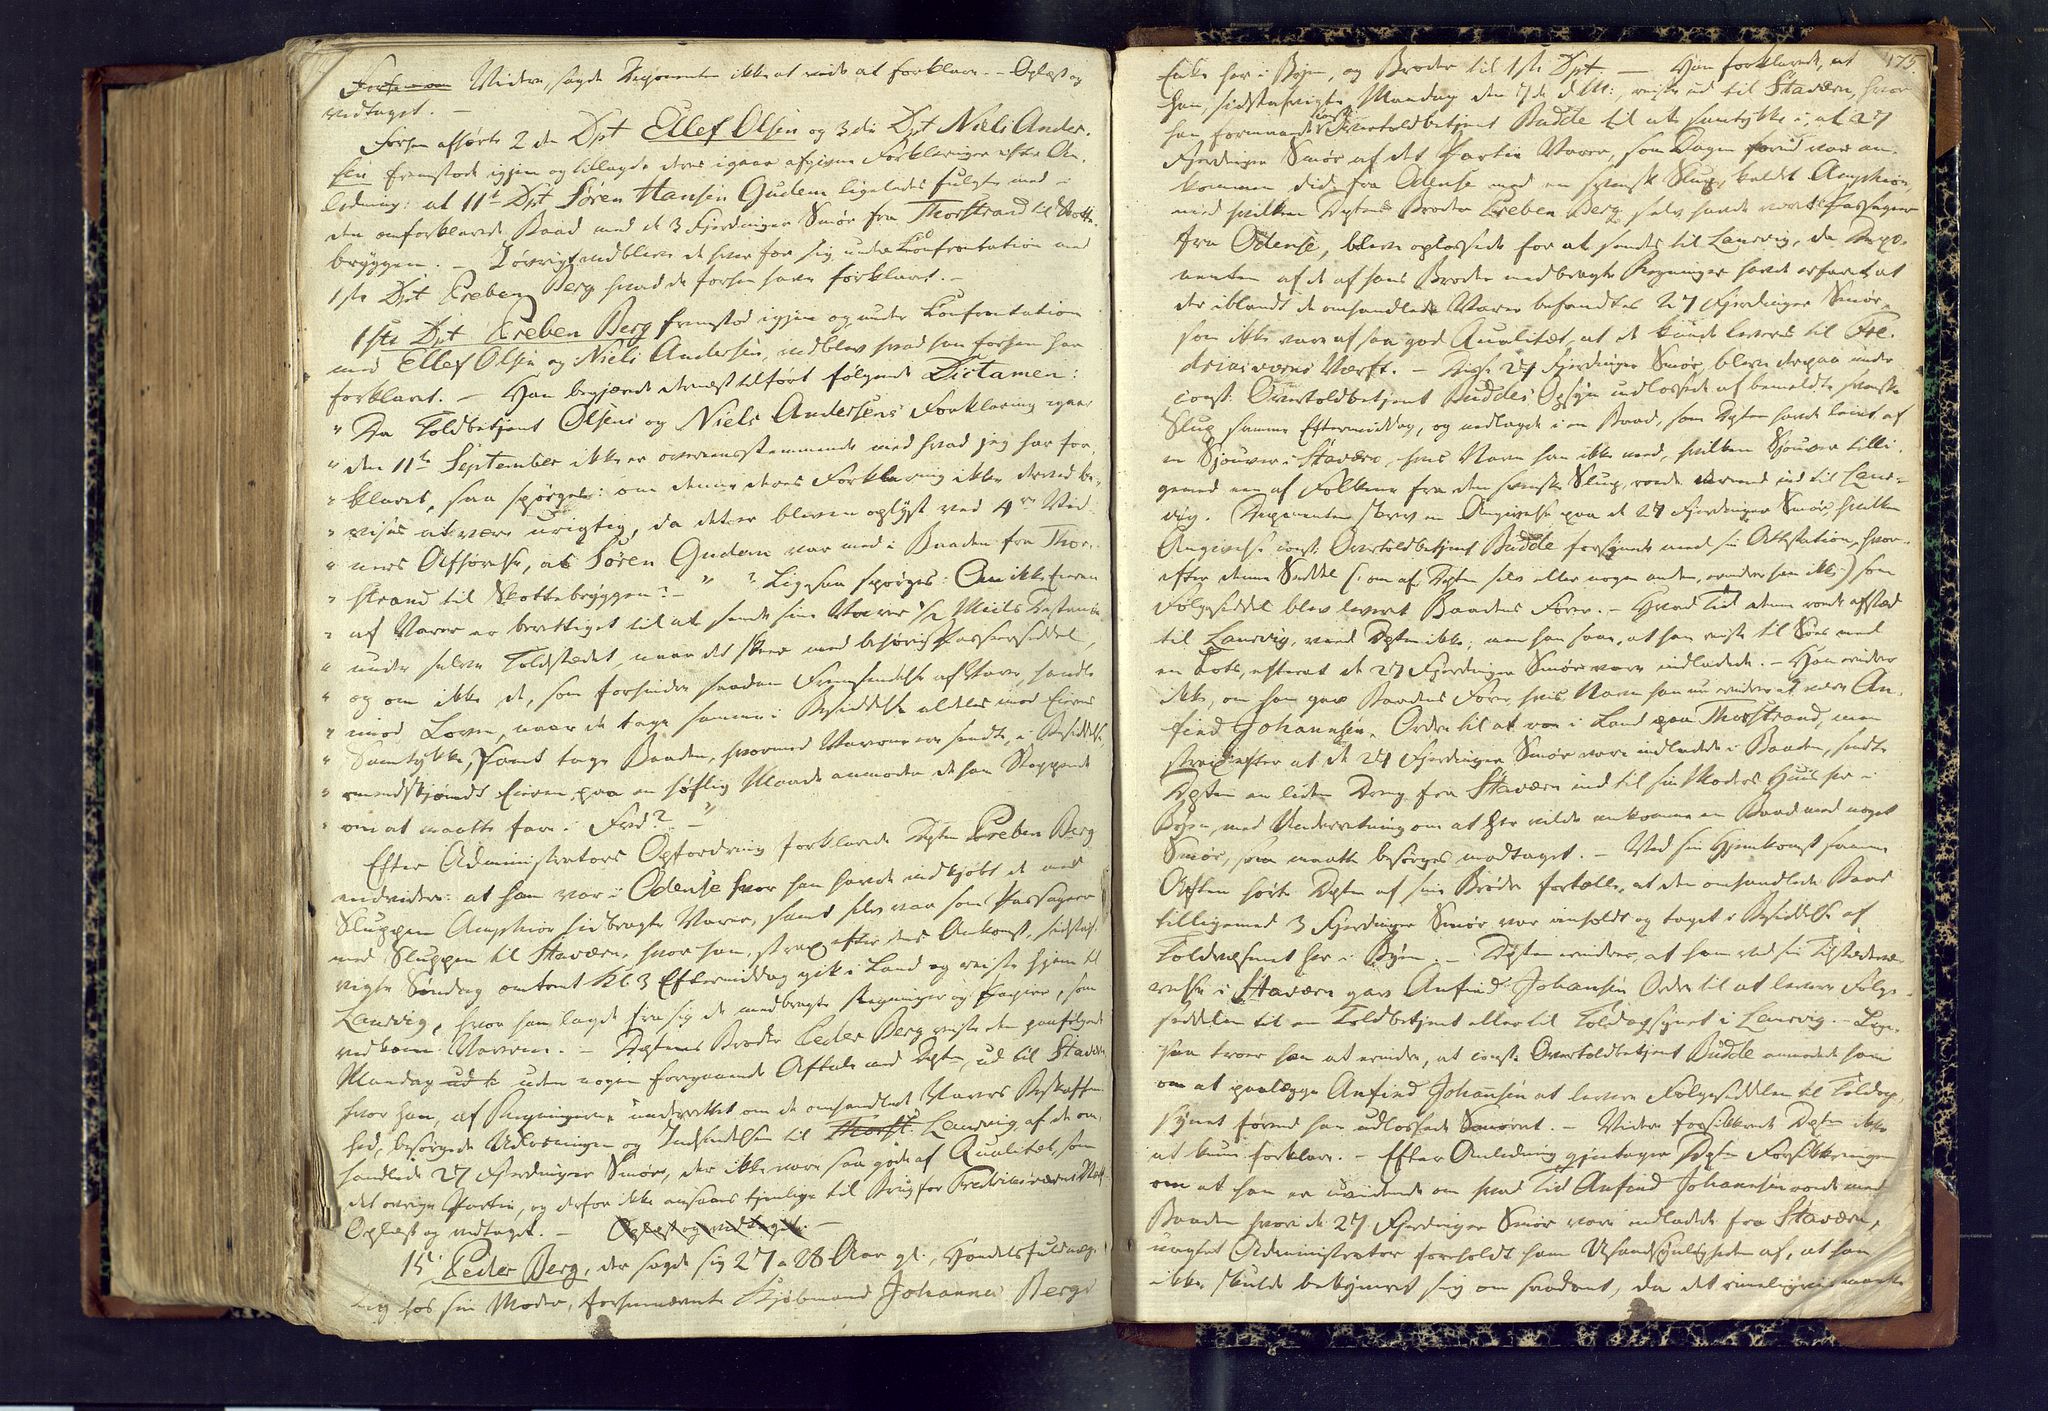 Forsaavidt Videre, sagde Deponenten ikke at vide at forklare. – Oplæst og
vedtaget. –
Forhen afhørte 2den Dpt Ellef Olsen og 3die Dpt Niels Ander-
sen fremstode igjen og tillagde deres igaar afgivne Forklaringer efter An-
ledning: at 11te Dpt Søren Hansen Gudem ligeledes fulgte med i
den omforklarede Baad med de 3 Fjerdinger Smør fra Thorstrand til Skotte-
bryggen. – I øvrigt vedbleve de hver for sig under Confrontation med
1ste Dpt Preben Berg hvad de forhen have forklaret. –
1ste Dpt Preben Berg fremstod igjen og under Confrontation
med Ellef Olsen og Niels Andersen, vedblev hvad han forhen har
forklaret. – Han begjærede dernæst tilført følgende Dictamen:
" Da Toldbetjent Olsens og Niels Andersens Forklaring igaar
" den 11te September ikke er overensstemmende med hvad jeg har for-
" klaret, saa spørges: om denne deres Forklaring ikke derved be-
" vises at være urigtig, da det er bleven oplyst ved 4re Vid-
" ners Afhørelse, at Søren Gudem var med i Baaden fra Thor-
" strand til Skottebryggen? – " " Ligesaa spørges: Om ikke Eieren
" af Varer er berettiget til at sende sine Varer ½ Miils Distance
" under selve Toldstædet, naar det skeer med behørig Passeerseddel,
" og om ikke de, som forhindre saadan Fremsendelse af Varer, handle
" imod Loven, naar de tage samme i Besiddelse aldeles mod Eierens
" Samtykke, samt tage Baaden, hvormed Varerne ere sendte, i Besiddelse
" omendskjøndt Eieren, paa en høflig Maade anmoder de ham Stoppende
" om at maatte fare i Fred? – "
Efter Administrators Opfordring forklarede Dpten Preben Berg
endvidere: at han var i Odense hvor han havde indkjøbt de med
Sluppen Amphion hidbragte Varer, samt selv var som Passageer
med Sluppen til Stavern, hvor han, strax efter dens Ankomst, sidstaf-
vigte Søndag omtrent Kl 3 Eftermiddag gik i Land og reiste hjem til
Laurvig, hvor han lagde fra sig de medbragte Regninger og Papirer, som
vedkom Varerne. – Dptens Broder Peder Berg reiste den paafølgende
Mandag ud til uden nogen foregaaende Aftale med Dpten, ud til Stavern
hvor han, af Regningerne underrettet om de omhandlede Varers Beskaffen-
hed, besørgede Udlosningen og Indsendelsen til Thorst. Laurvig af de om-
handlede 27 Fjerdinger Smør, der ikke vare saa gode af Qualitet, som
det øvrige Partie, og derfor ikke ansaaes tjenlige til Brug for Fredriksværns Værft.
Oplæst og vedtaget. – Oplæst og vedtaget. –
15. Peder Berg, der sagde sig 27 a 28 Aar gl., Handelsfuldmæg-
tig hos sin Moder, forhenværende Kjøbmand Johannes Bergs
175
Enke her i Byen, og Broder til 1ste Dpt – Han forklarede, at
han, sidstafvigte Mandag den 7de d. M., reiste ud til Stavern, hvor
han formaaede const. Overtoldbetjent Budde til at samtykke i, at 27
Fjerdinger Smør af det Partie Varer, som Dagen forud var an-
kommen did fra Odense med en svensk Slup, kaldt Amphion,
med hvilken Dptens Broder Preben Berg selv havde været Passageer
fra Odense, bleve oplossede for at sendes til Laurvig, da Depo-
nenten af de af hans Broder medbragte Regninger havde erfaret, at
der iblandt de omhandlede Varer befandtes 27 Fjerdinger Smør,
som ikke vare af saa god Qualitæt, at de kunde leveres til Fre-
driksværns Værft. – Disse 27 Fjerdinger Smør bleve derpaa under
const. Overtoldbetjent Buddes Opsyn udlossede af bemeldte svenske
Slup samme Eftermiddag, og nedlagde i en Baad, som Dpten havde leiet af
en Sjouer i Stavern, hvis Navn han ikke veed, hvilken Sjouer tilli-
gemed een af Folkene fra den svenske Slup, roede derved ind til Laur-
vig. Deponenten skrev en Angivelse paa de 27 Fjerdinger Smør, hvilken
Angivelse const. Overtoldbetjent Budde forsynede med sin Attestation, hvor-
efter denne Seddel (om af Dpten selv eller nogen anden, erindrer han ikke) som
Følgeseddel blev leveret Baadens Fører. – Hvad Tid denne roede afsted
til Laurvig, veed Dpten ikke; men han saae, at han reiste til Søes med
en Lods, efterat de 27 Fjerdinger Smør vare indladede. – Han erindrer
ikke, om han gav Baadens Fører hvis Navn han nu erindrer at være An-
find Johannsen, Ordre til at roe i Land paa Thorstrand, men
strax efter at de 27 Fjerdinger Smør vare indladede i Baaden, sendte
Dpten en liden Dreng fra Stavern ind til sin Moders Huus her i
Byen, med Underretning om at her vilde ankomme en Baad med noget
Smør, som maatte besørges modtaget. – Ved sin Hjemkomst samme
Aften hørte Dpten af sine Brødre fortælle, at den omhandlede Baad
tilligemed 3 Fjerdinger Smør var anholdt og taget i Besiddelse af
Toldvæsenet her i Byen. – Dpten erindrer, at han ved sin Tilstædevæ-
relse i Stavern gav Anfind Johansen Ordre til at levere Følge-
seddelen til en Toldbetjent eller til Toldopsynet i Laurvig. – Lige-
saa troer han at erindre, at const. Overtoldbetjent Budde anmodede ham
om at paalægge Anfind Johannsen at levere Følgeseddelen til Toldop-
synet førend han udlossede Smørret. – Videre forsikkrede Dpten ikke
at kunne forklare. – Efter Anledning gjentager Dpten Forsikkringen
om at han er uvidende om hvad Tid Anfind Johannsen roede med
Baaden hvori de 27 Fjerdinger Smør vare indladede fra Stavern,
uagtet Administrator foreholdt ham Usandsynligheden af, at han
ikke skulde bekymret sig om saadant, da det rimeligviis maatte